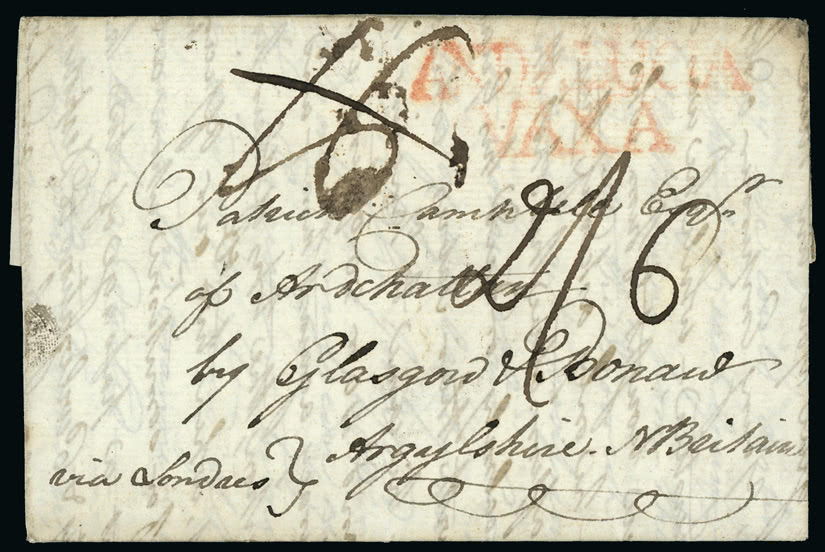 ANDALUCIA
VAXA
Patrick Campbell Esqr
2/6
of Ardchattan
by Glasgow & Bonaw
Argylshire. N Britain
via Londres